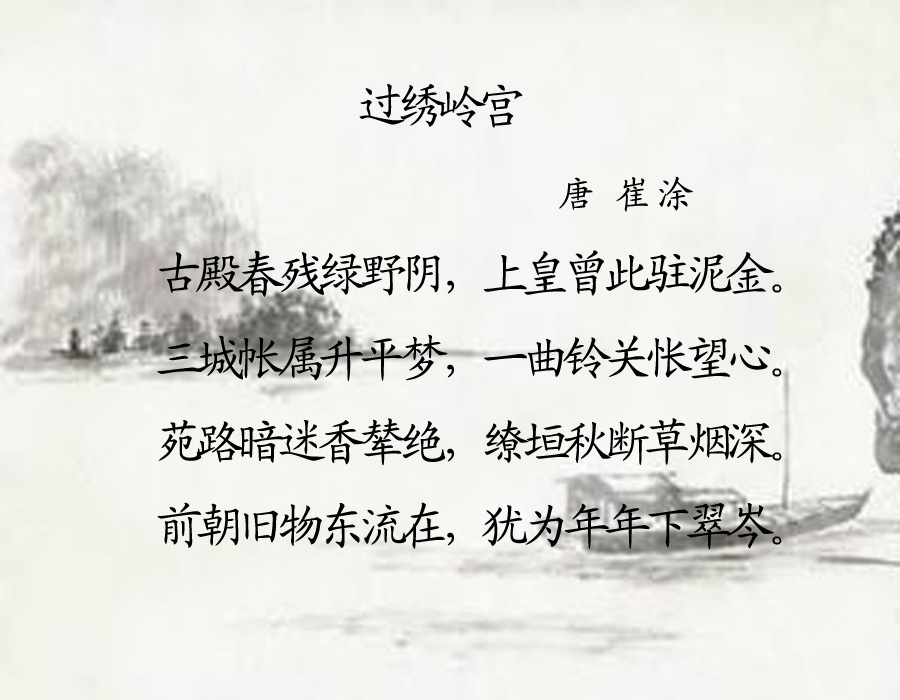 过绣岭宫
唐 崔涂
古殿春残绿野阴，上皇曾此驻泥金。
三城帐属升平梦，一曲铃关怅望心。
苑路暗迷香辇绝，缭垣秋断草烟深。
前朝旧物东流在，犹为年年下翠岑。